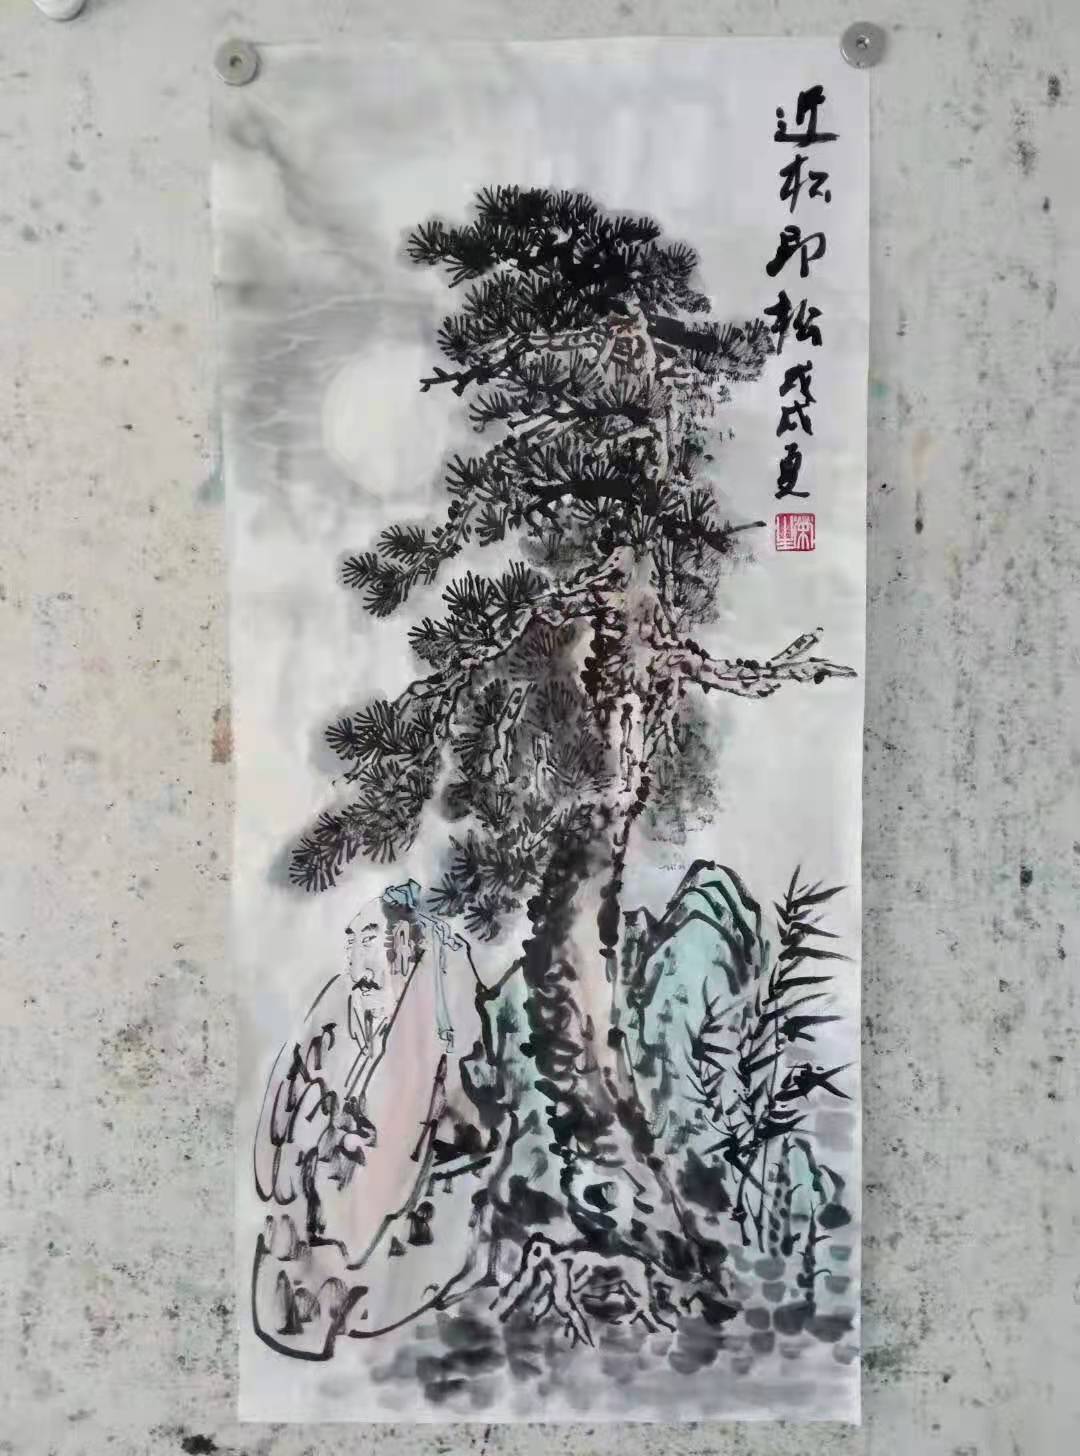 近松即松 戊戌夏